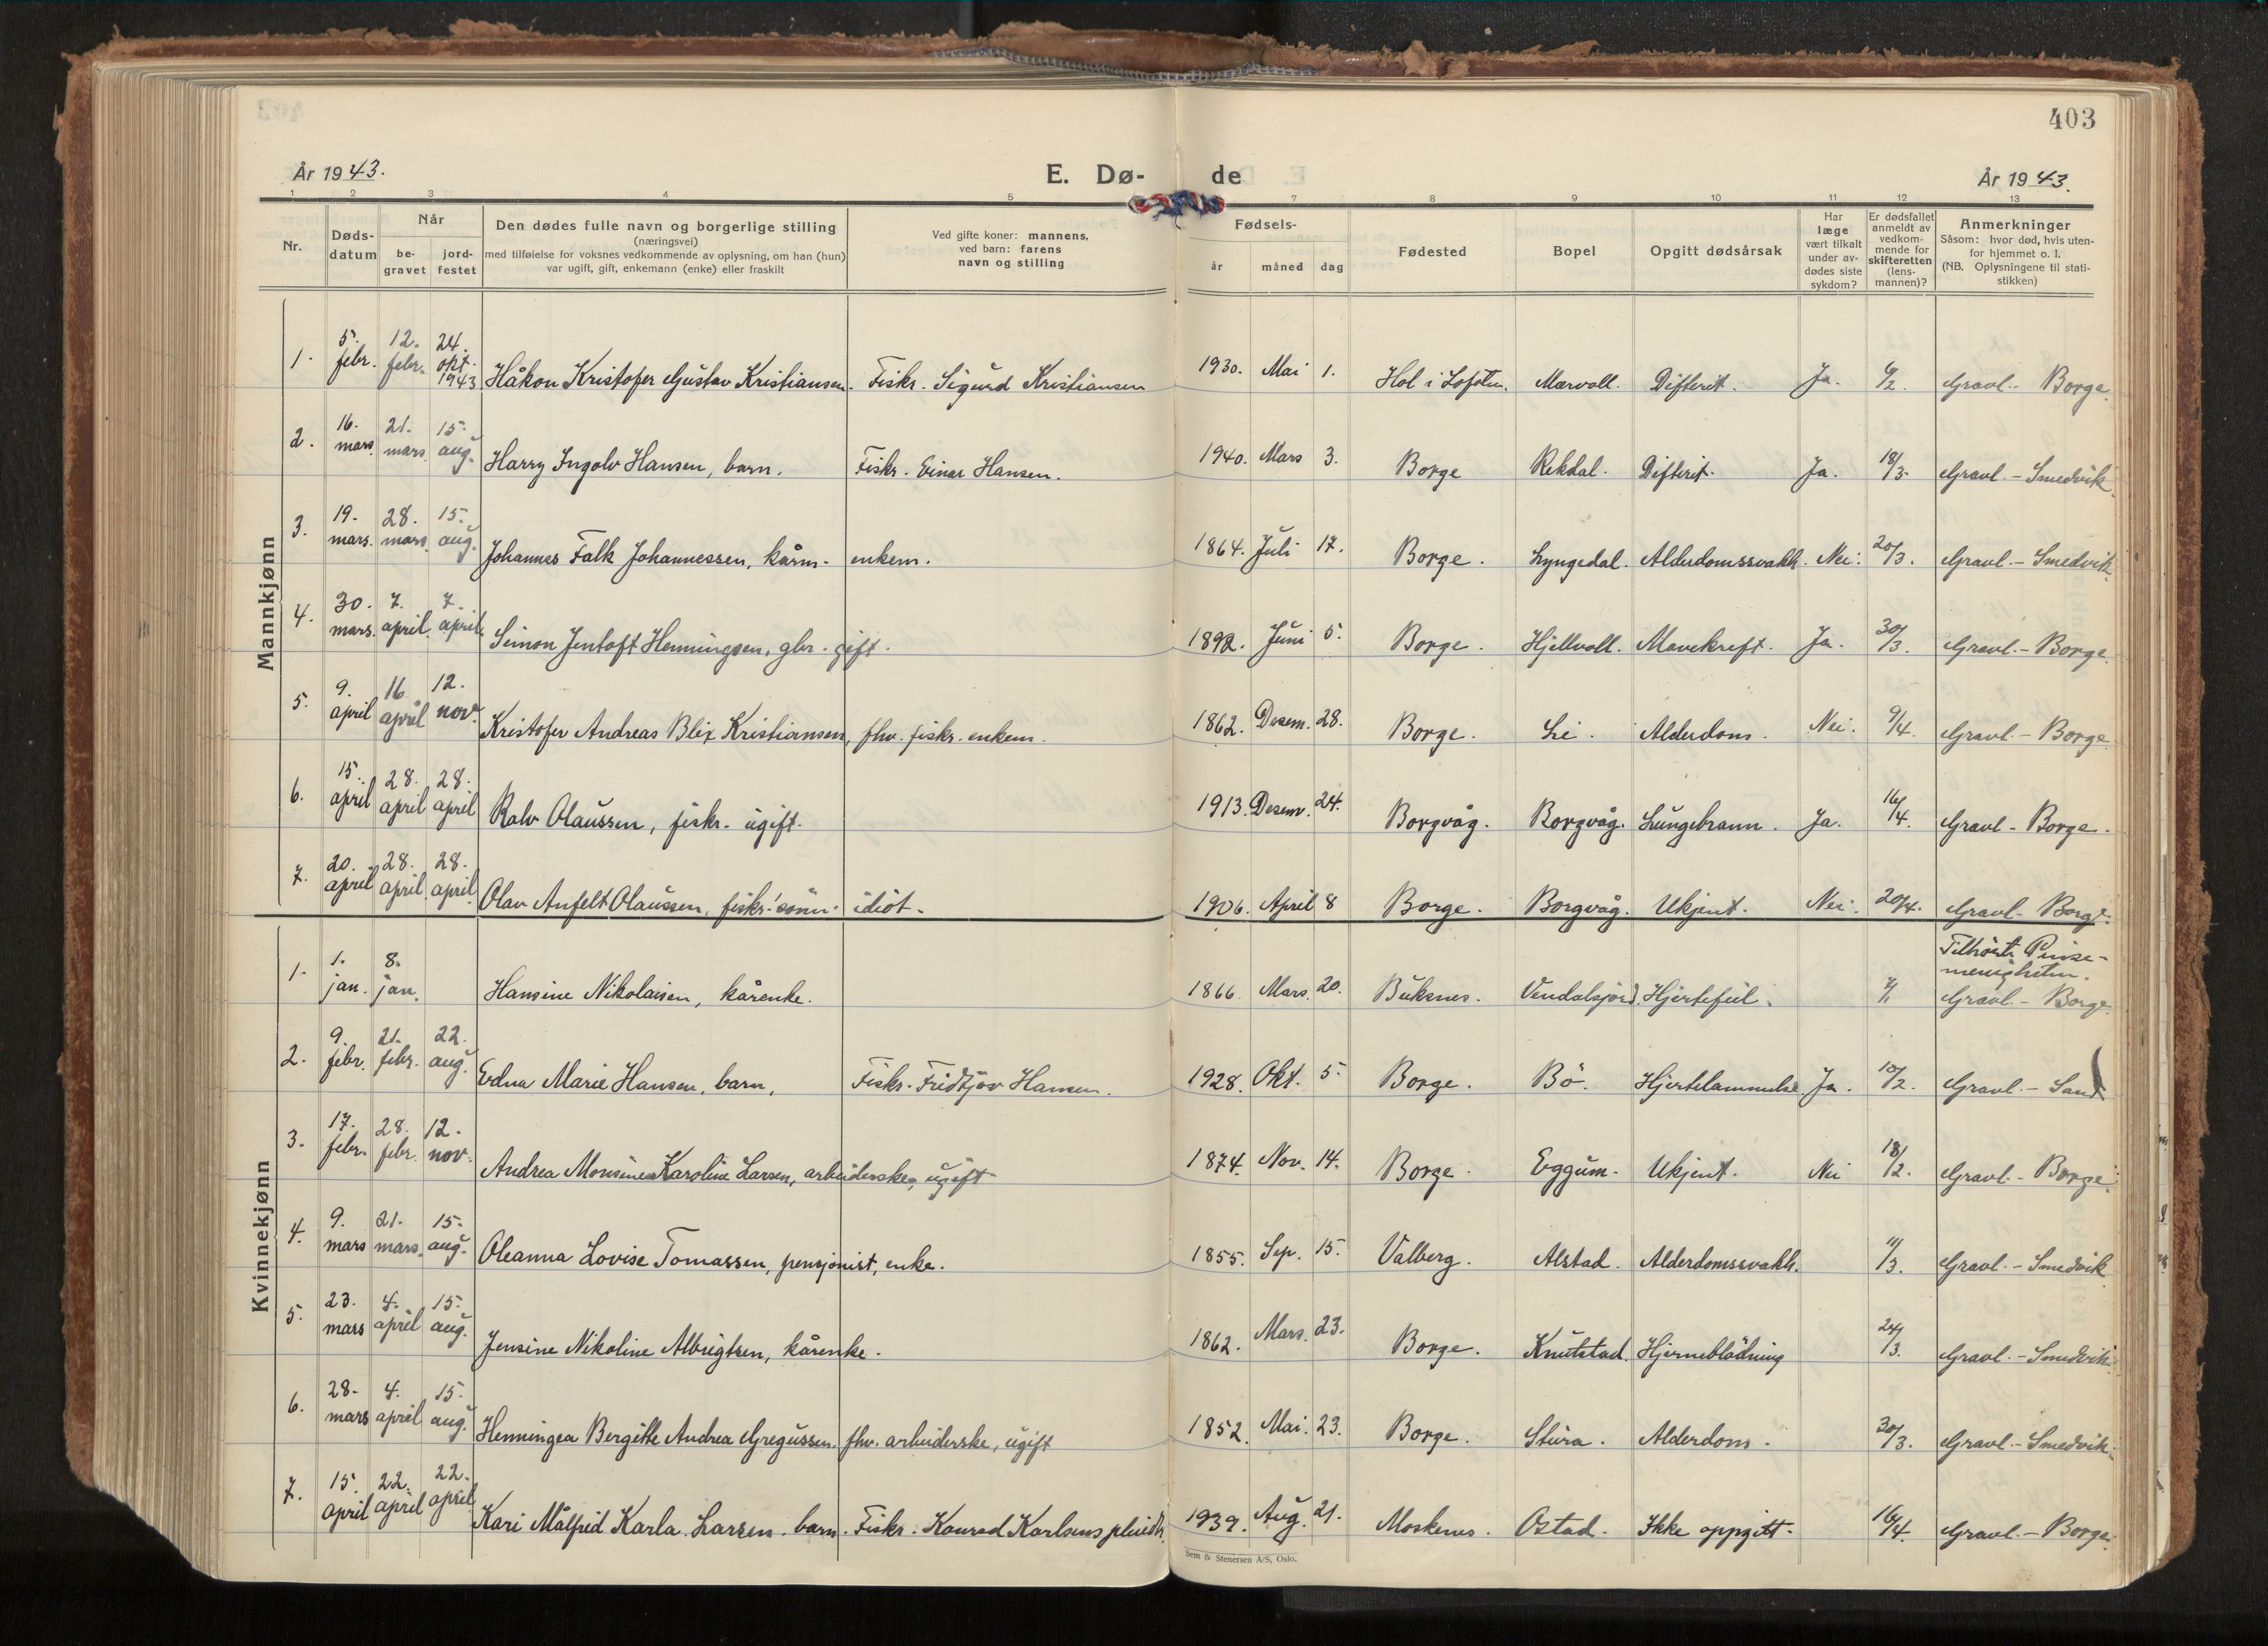 403
År 1943.
E. Dø-
de
År 1943.
1 2 3 4 5 7 8 9 10 11 12 13
Nr.
Døds-
datum
Når
be-
gravet
jord-
festet
Den dødes fulle navn og borgerlige stilling
(næringsvei)
med tilføielse for voksnes vedkommende av oplysning, om han (hun)
var ugift, gift, enkemann (enke) eller fraskilt
Ved gifte koner: mannens,
ved barn: farens
navn og stilling
Fødsels-
år måned dag
Fødested
Bopel
Opgitt dødsårsak
Har
læge
vært tilkalt
under av-
dødes siste
sykdom?
Er dødsfallet
anmeldt av
vedkom-
mende for
skifteretten
(lens-
mannen)?
Anmerkninger
Såsom: hvor død, hvis uten-
for hjemmet o. l.
(NB. Oplysningene til stati-
stikken)
Mannkjønn
1. 5. febr. 12. febr. 24. okt. 1943 Håkon Kristofer Gustav Kristiansen. Fiskr. Sigurd Kristiansen 1930. Mai 1. Hol i Lofoten. Mærvoll. Difterit. Ja. 6/2. Gravl. - Borge.
2. 16. mars. 21. mars. 15. aug. Harry Ingolv Hansen, barn. Fiskr. Einar Hansen. 1940. Mars 3. Borge Rekdal. Difterit. Ja. 18/3. Gravl. - Smedvik.
3. 19. mars. 28. mars. 15. aug. Johannes Falk Johannessen, kårm. enkem. 1864. Juli 17. Borge. Lyngedal. Alderdomssvakh. Nei. 20/3. Gravl. - Smedvik.
4. 30. mars. 7. april. 7. april. Simon Jentoft Henningsen, gbr. gift. 1892. Juni 5. Borge. Hjellvoll. Mavekreft. Ja. 30/3. Gravl. - Borge.
5. 9. april 16 april 12. nov. Kristofer Andreas Blix Kristiansen, fhv. fiskr. enkem. 1862. Desem. 28. Borge. Lie. Alderdom. Nei. 9/4. Gravl. - Borge.
6. 15. april 28. april 28. april Ralv Olaussen, fiskr. ugift. 1913. Desem. 24. Borgvåg. Borgvåg. Lungebrann. Ja. 16/4. Gravl - Borge.
7. 20. april 28. april 28. april. Olav Anfelt Olaussen, fiskr. sönn. idiot. 1906. April 8 Borge. Borgvåg. Ukjent. Nei. 20/4. Gravl - Borge.
Kvinnekjønn
1. 1. jan. 8. jan. Hansine Nikolaisen, kårenke. 1866. Mars. 20. Buksnes. Vendalsjord. Hjertefeil. Tilhörte Pinse-
menigheten.
Gravl. - Borge.
2. 9. febr. 21. febr. 22. aug. Edna Marie Hansen, barn, Fiskr. Fridtjov Hansen. 1928. Okt. 5. Borge. Bö. Hjertelammelse Ja. 10/2. Gravl. - Sand
3. 17. febr. 28. febr. 12. nov. Andrea Monsine Karoline Larsen, arbeiderske, ugift 1874. Nov. 14. Borge. Eggum. Ukjent. Nei 18/2. Gravl. - Borge.
4. 9. mars 21. mars. 15. aug. Oleanna Lovise Tomassen, pensjonist, enke. 1855. Sep. 15. Valberg. Alstad. Alderdomssvakh. 11/3. Gravl. - Smedvik
5. 23. mars 4. april 15. aug. Jensine Nikoline Albrigtsen, kårenke. 1862. Mars. 23. Borge. Knutstad. Hjerneblödning 24/3. Gravl. - Smedvik.
6. 28. mars 4. april 15. aug. Henningea Bergitte Andrea Gregussen. fhv. arbeiderske, ugift 1852. Mai. 23. Borge. Stura. Alderdom. 30/3. Gravl. - Smedvik.
7. 15. april 22. april 22. april Kari Målfrid Karla Larsen. barn. Fiskr. Konrad Karlsens pleied. 1939. Aug. 21. Moskenes. Ostad. Ikke oppgitt. 16/4. Gravl. - Borge.
Sem & Stenersen A/S, Oslo.